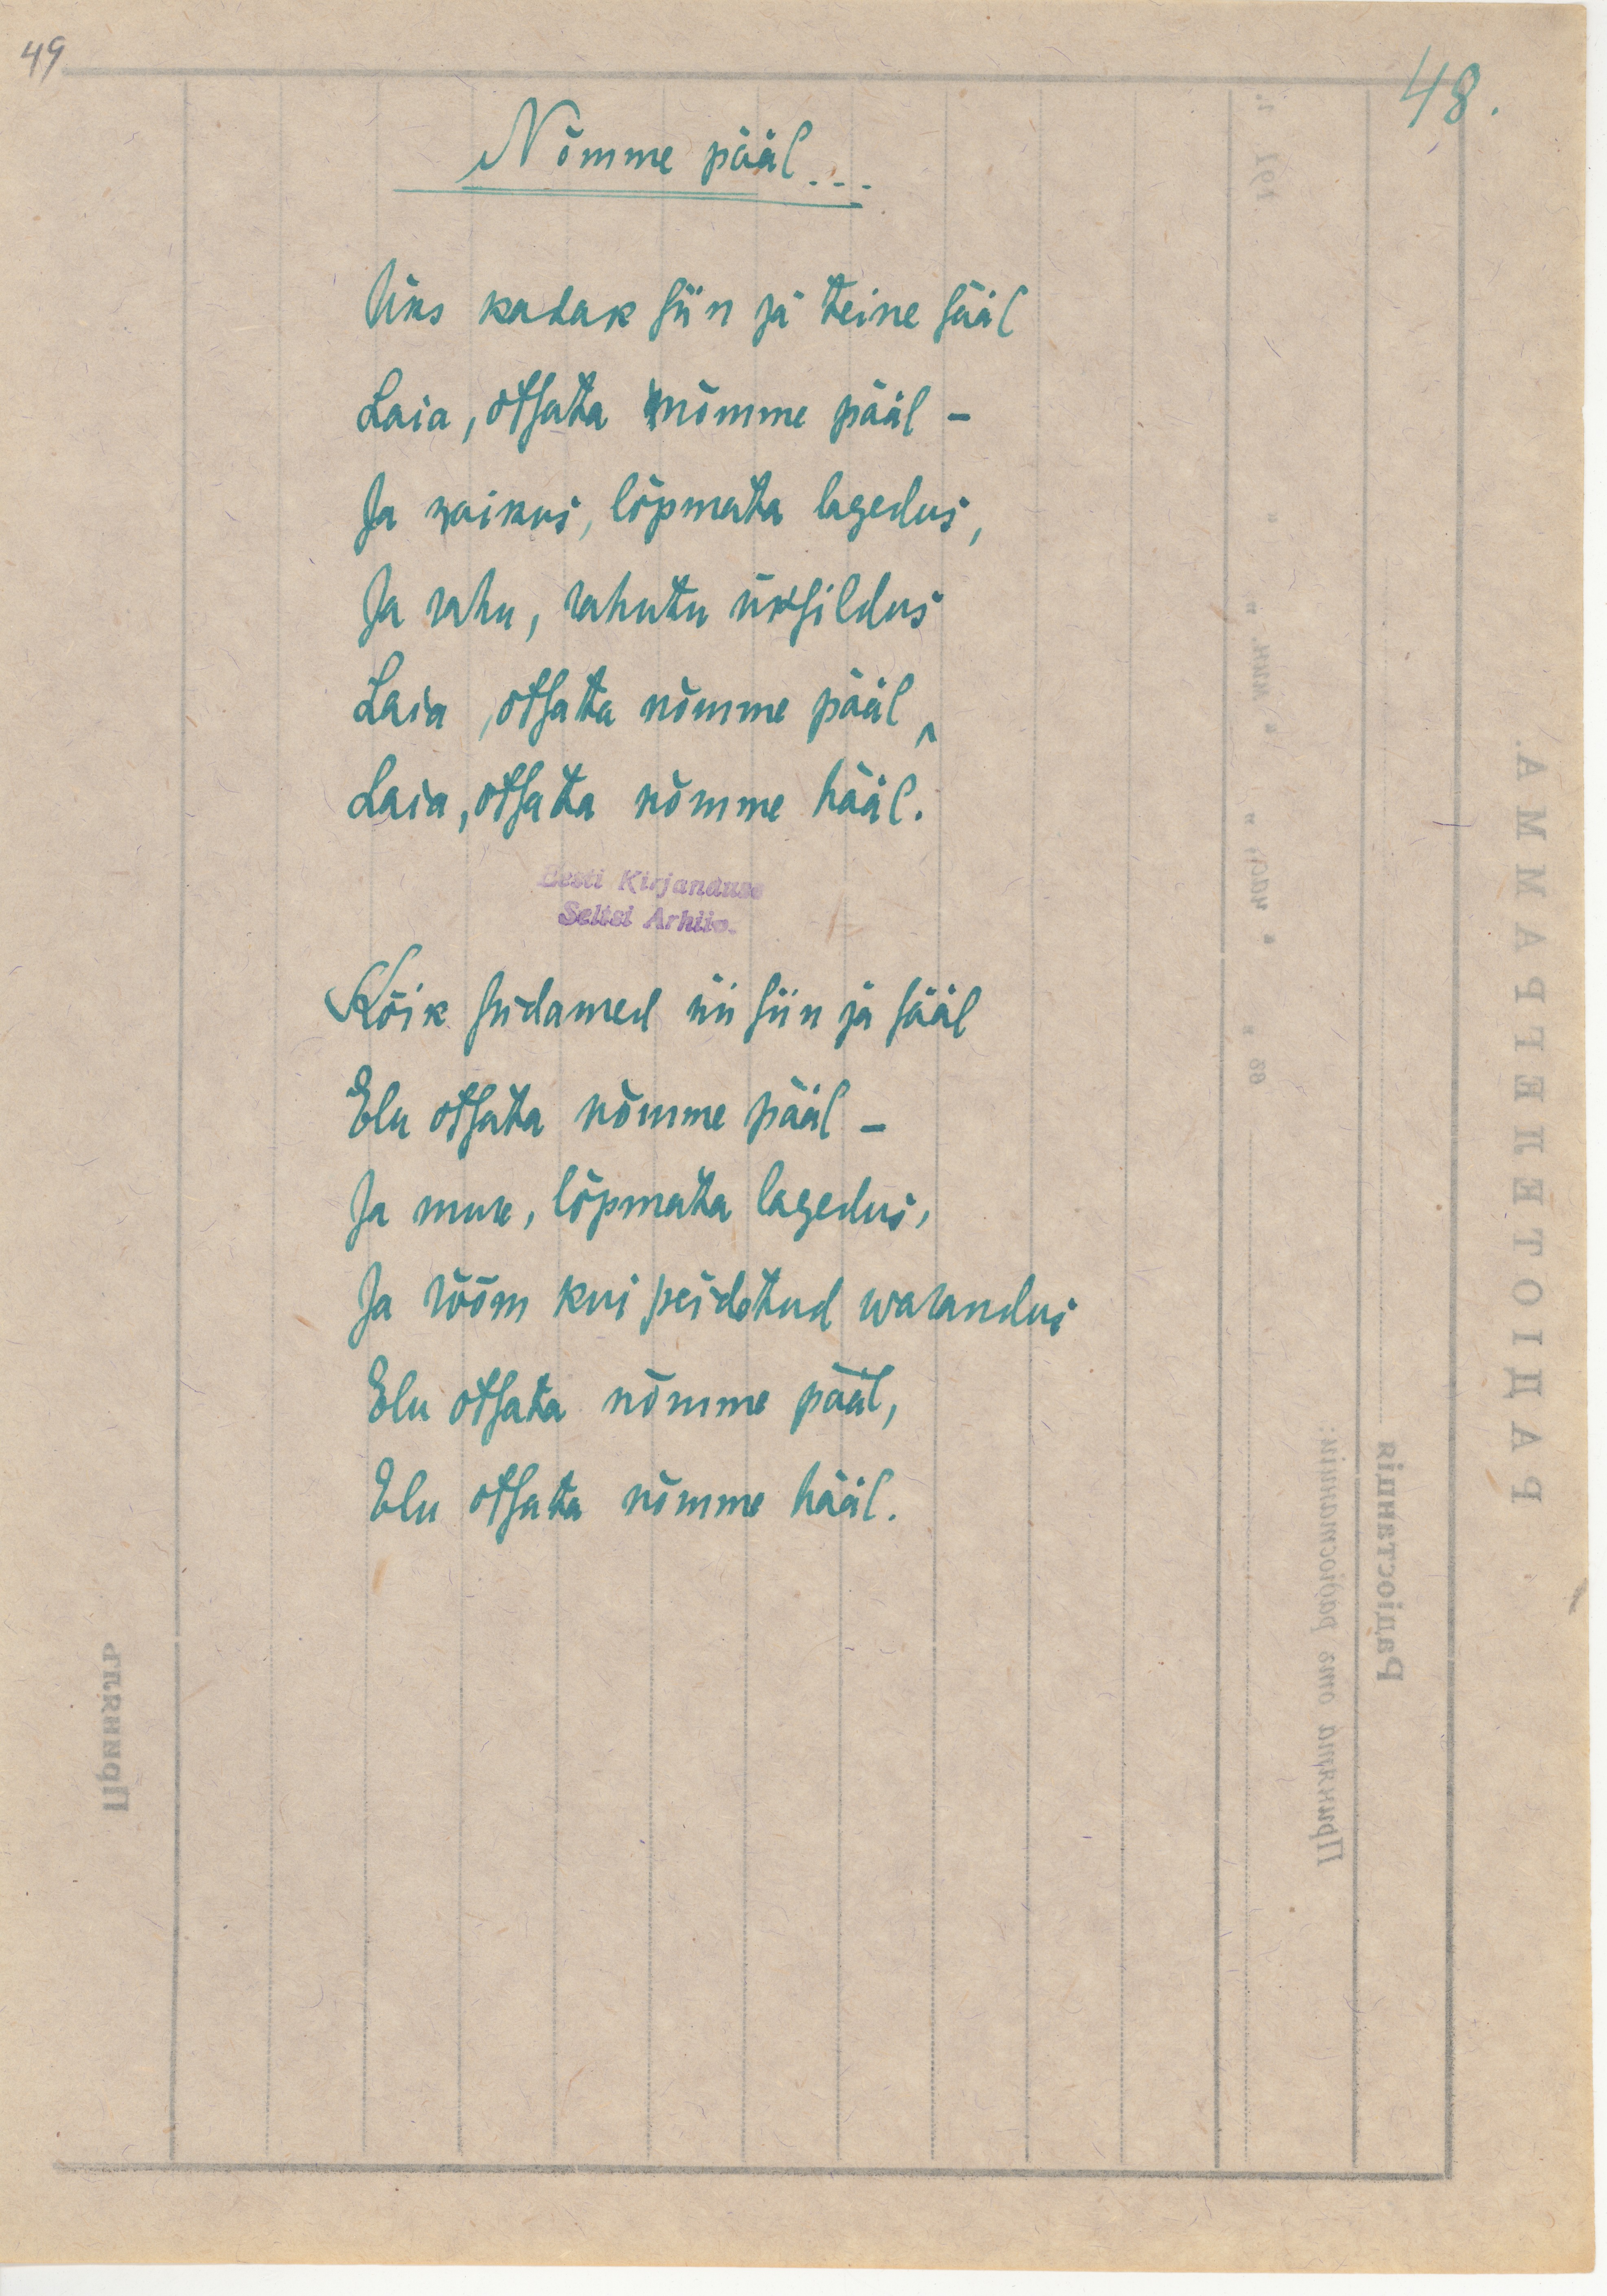 49
48.
Nõmme pääl...
Üks kadak siin ja teine sääl
Laia, otsata nõmme pääl –
Ja vaikus, lõpmata lagedus,
Ja rahu, rahutu üksildus
Laia, otsata nõmme pääl,
Laia, otsata nõmme hääl.
Eesti Kirjanduse
Seltsi Arhiiv.
Kõik südamed nii siin ja sääl
Elu otsata nõmme pääl –
Ja mure, lõpmata lagedus,
Ja rõõm kui peidetud warandus
Elu otsata nõmme pääl,
Elu otsata nõmme hääl.
РАДІОТЕЛЕГРАММА.
Радіостанція
Принята отъ радіостанціи:
Принялъ